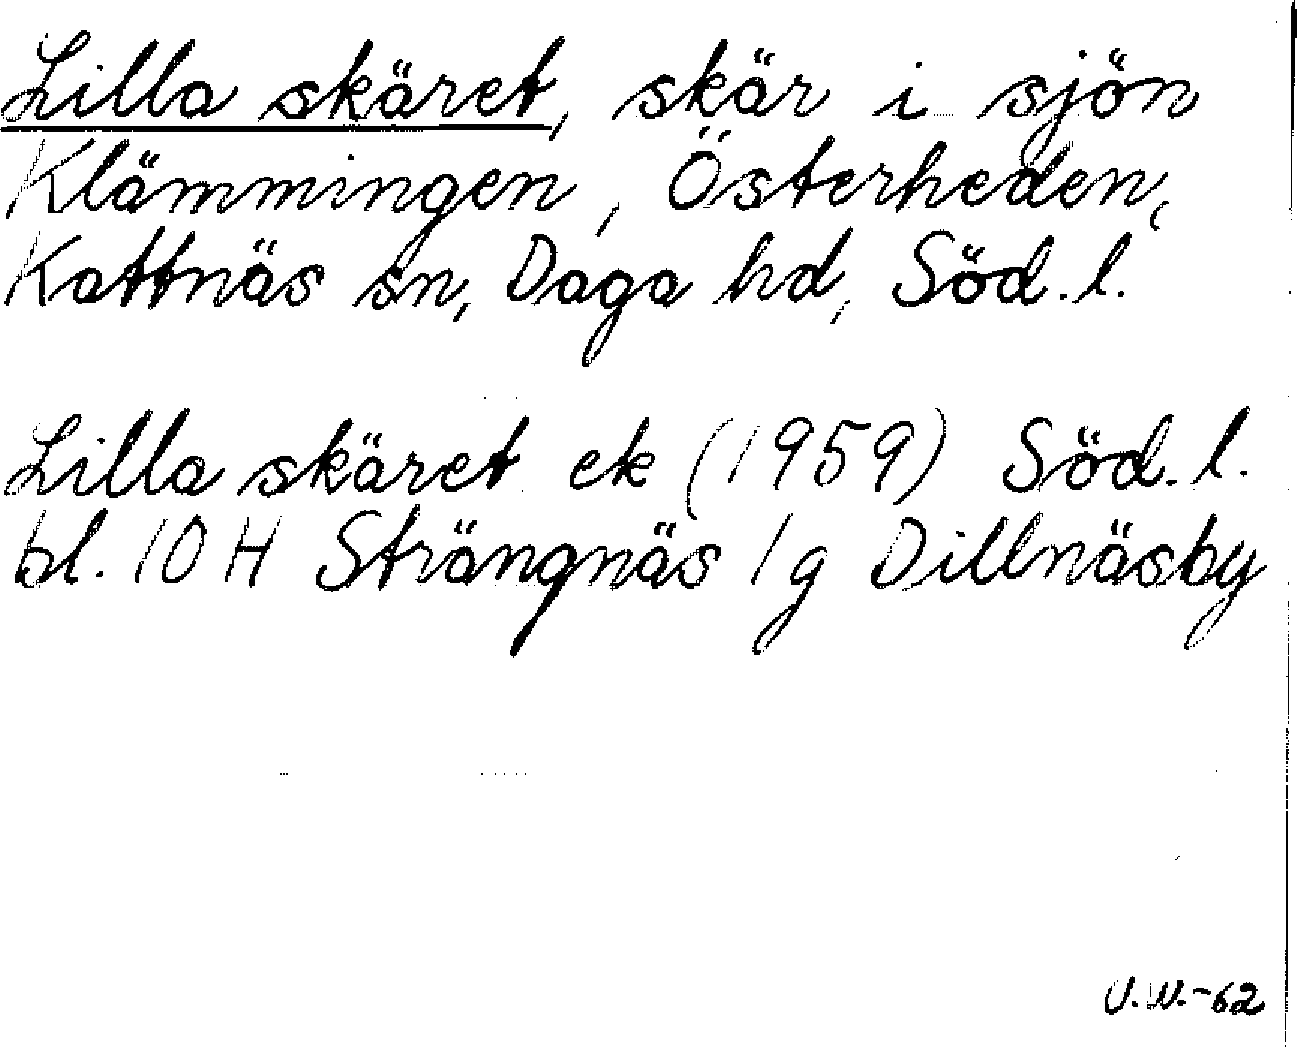 Lilla skäret, skär i sjön
Klämmingen, Österheden,
Kattnäs sn, Daga hd, Söd. l.
Lilla skäret ek (1959) Söd. l.
bl. 10 H Strängnäs 1g Dillnäsby
U.W.-62